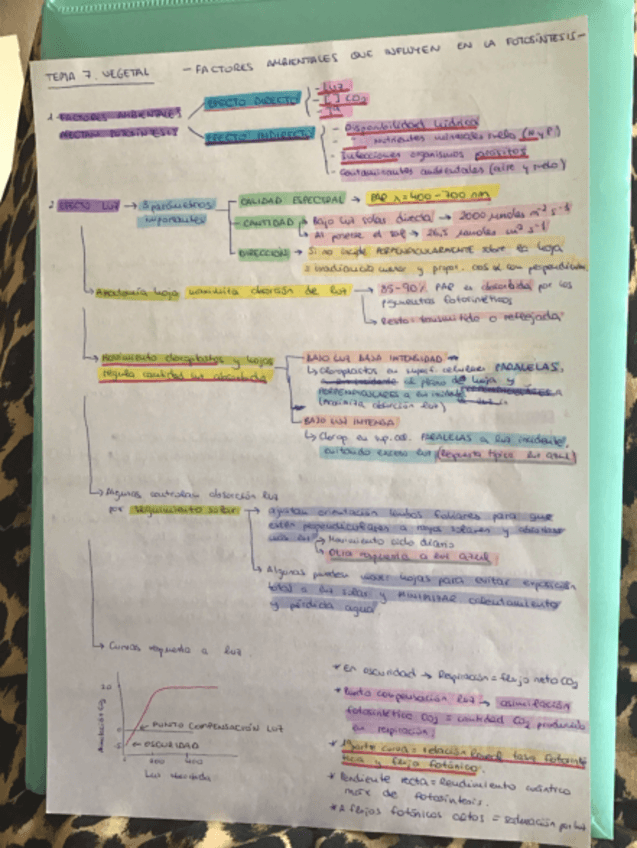 TEMA 7. VEGETAL - FACTORES AMBIENTALES QUE INFLUYEN EN LA FOTOSÍNTESIS -
1. FACTORES AMBIENTALES
AFECTAN FOTOSÍNTESIS
EFECTO DIRECTO
- LUZ
- [ ] CO2
- Tª
EFECTO INDIRECTO
- Disponibilidad hídrica
- " nutrientes minerales suelo (N y P)
- Infecciones organismos parásitos
- Contaminantes ambientales (aire y suelo)
2. EFECTO LUZ → 3 parámetros
importantes
CALIDAD ESPECTRAL → PAR λ = 400-700 nm
- CANTIDAD → Bajo luz solar directa → 2000 μmoles m-2 s-1
→ Al ponerse el sol → 26,5 μmoles m-2 s-1
DIRECCIÓN → Si no incide PERPENDICULARMENTE sobre la hoja
irradiancia menor y propor. cos α con perpendicular
→ Anatomía hoja maximiza absorción de luz → 85-90% PAR es absorbida por los
pigmentos fotosintéticos
→ Resto: transmitido o reflejada
→ Movimiento cloroplastos y hojas
regula cantidad luz absorbida
BAJO LUZ BAJA INTENSIDAD
↳ Cloroplastos en superf. celulares PARALELAS
al plano de hoja y
PERPENDICULARES a luz incidente
(maximiza absorción luz)
BAJO LUZ INTENSA
↳ Clorop. en sup. cel. PARALELAS a luz incidente,
evitando exceso luz (Respuesta típica luz azul)
→ Algunas controlan absorción luz
por seguimiento solar → ajustan orientación limbos foliares para que
estén perpendiculares a rayos solares y absorban
más luz → Movimiento ciclo diario
→ Otra respuesta a luz azul
→ Algunas pueden mover hojas para evitar exposición
total a luz solar y MINIMIZAR calentamiento
y pérdida agua
→ Curvas respuesta a luz
20
0
-5
Asimilación CO2
PUNTO COMPENSACIÓN LUZ
OSCURIDAD
200 400
Luz absorbida
* En oscuridad → Respiración = flujo neto CO2
* Punto compensación luz → asimilación
fotosintética CO2 = cantidad CO2 producido
en respiración
* 1ª parte curva = relación lineal tasa fotosinté-
tica y flujo fotónico.
* Pendiente recta = Rendimiento cuántico
máx de fotosíntesis.
* A flujos fotónicos altos = saturación por luz